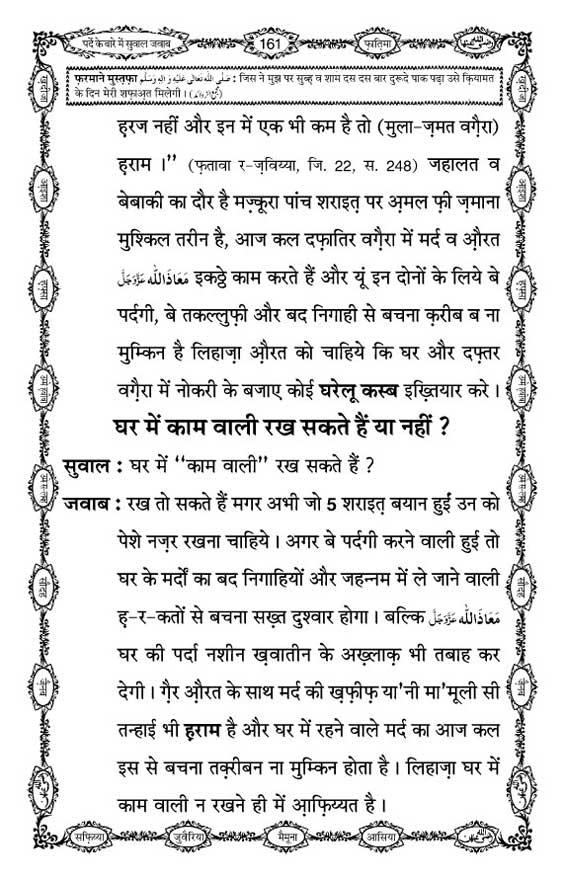 पर्दे के बारे में सुवाल जवाब
161
फ़ातिमा
फ़रमाने मुस्तफ़ा صَلَّى اللّٰهُ تَعَالٰى عَلَيْهِ وَاٰلِهٖ وَسَلَّم : जिस ने मुझ पर सुब्ह व शाम दस दस बार दुरूदे पाक पढ़ा उसे क़ियामत
के दिन मेरी शफ़ाअ़त मिलेगी ।
हरज नहीं और इन में एक भी कम है तो (मुला-ज़मत वग़ैरा)
ह़राम ।” (फ़तावा र-ज़विय्या, जि. 22, स. 248) जहालत व
बेबाकी का दौर है मज़्कूरा पांच शराइत़ पर अ़मल फ़ी ज़माना
मुश्किल तरीन है, आज कल दफ़ातिर वग़ैरा में मर्द व औ़रत
مَعَاذَاللّٰه عَزَّوَجَلَّ इकठ्ठे काम करते हैं और यूं इन दोनों के लिये बे
पर्दगी, बे तकल्लुफ़ी और बद निगाही से बचना क़रीब ब ना
मुम्किन है लिहाज़ा औ़रत को चाहिये कि घर और दफ़्तर
वग़ैरा में नोकरी के बजाए कोई घरेलू कस्ब इख़्तियार करे ।
घर में काम वाली रख सकते हैं या नहीं ?
सुवाल : घर में “काम वाली” रख सकते हैं ?
जवाब : रख तो सकते हैं मगर अभी जो 5 शराइत़ बयान हुईं उन को
पेशे नज़र रखना चाहिये । अगर बे पर्दगी करने वाली हुई तो
घर के मर्दों का बद निगाहियों और जहन्नम में ले जाने वाली
ह़-र-कतों से बचना सख़्त दुश्वार होगा । बल्कि مَعَاذَاللّٰه عَزَّوَجَلَّ
घर की पर्दा नशीन ख़वातीन के अख़्लाक़ भी तबाह कर
देगी । ग़ैर औ़रत के साथ मर्द की ख़फ़ीफ़ या'नी मा'मूली सी
तन्हाई भी ह़राम है और घर में रहने वाले मर्द का आज कल
इस से बचना तक़्रीबन ना मुम्किन होता है । लिहाज़ा घर में
काम वाली न रखने ही में आ़फ़िय्यत है ।
सफ़िय्या
जुवैरिया
मैमूना
आसिया